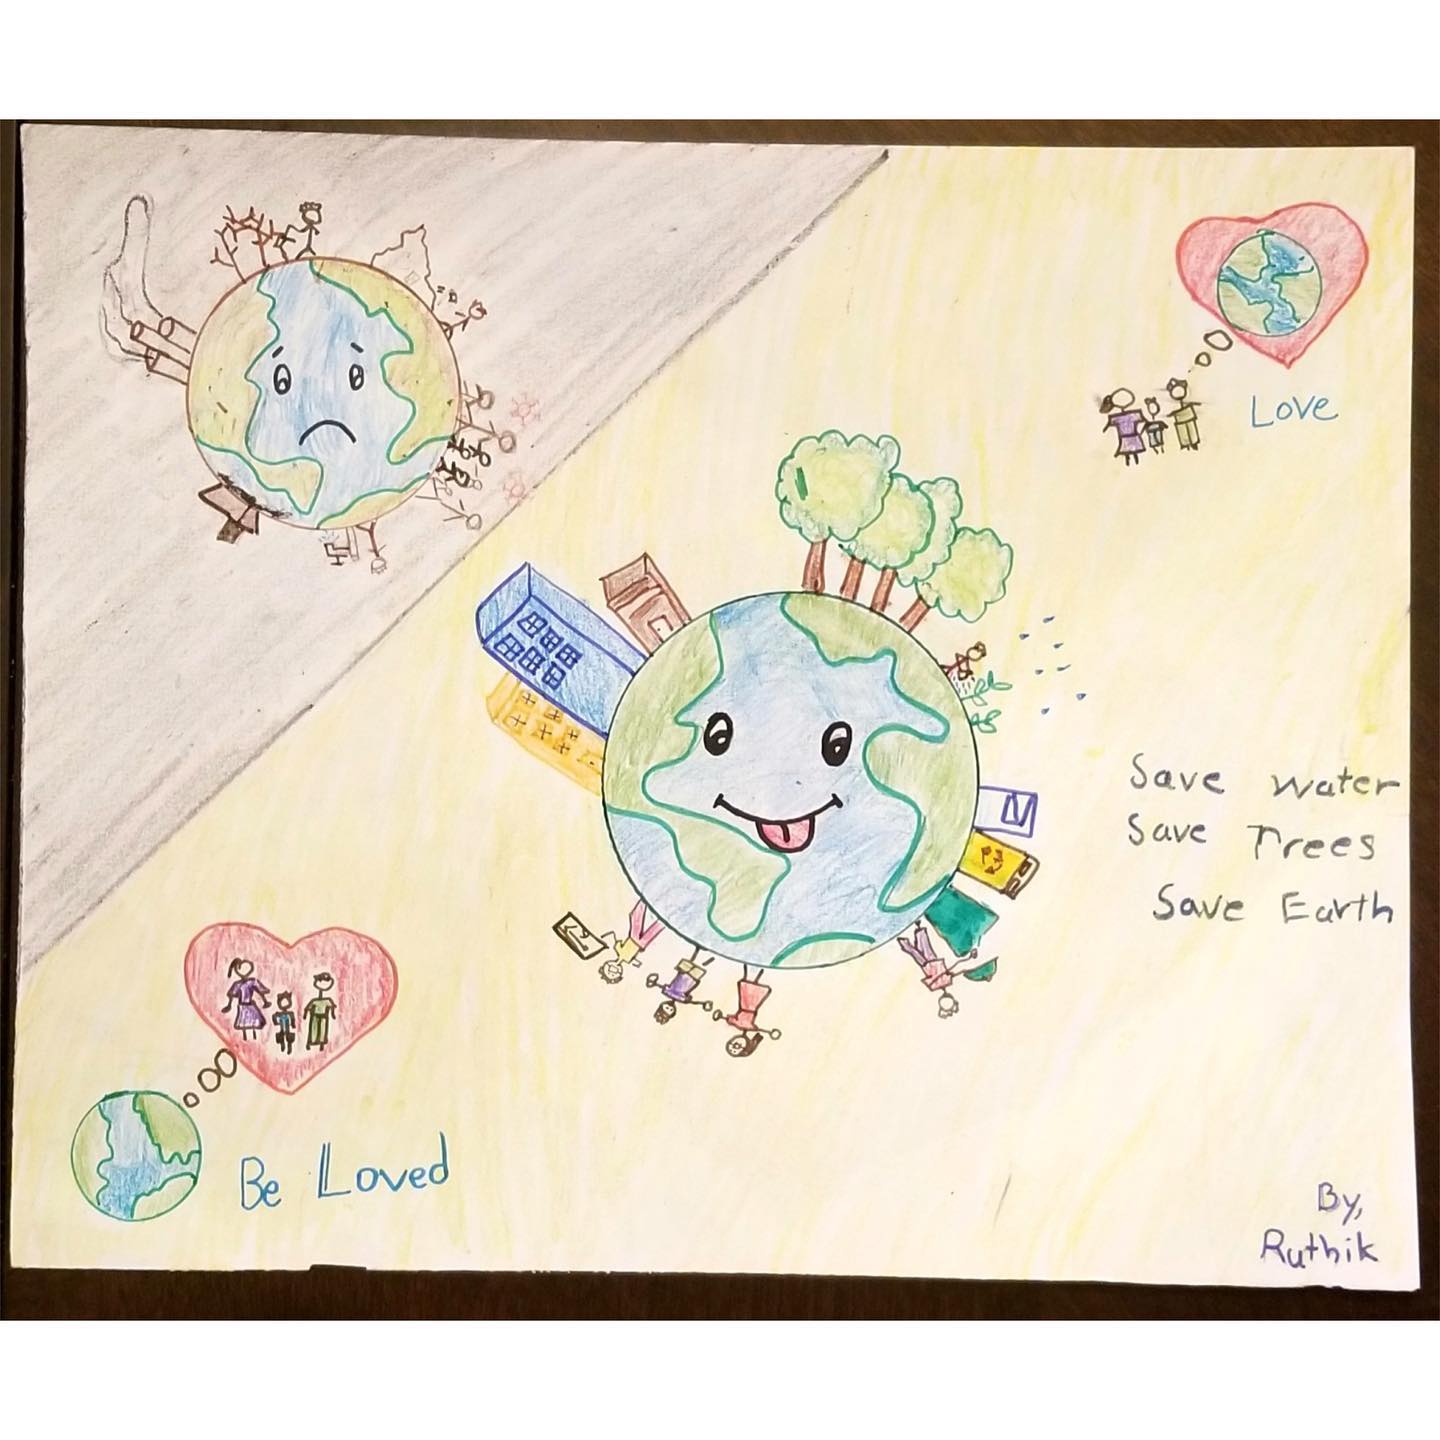 Love
Save water
Save Trees
Save Earth
Be Loved
By,
Ruthik